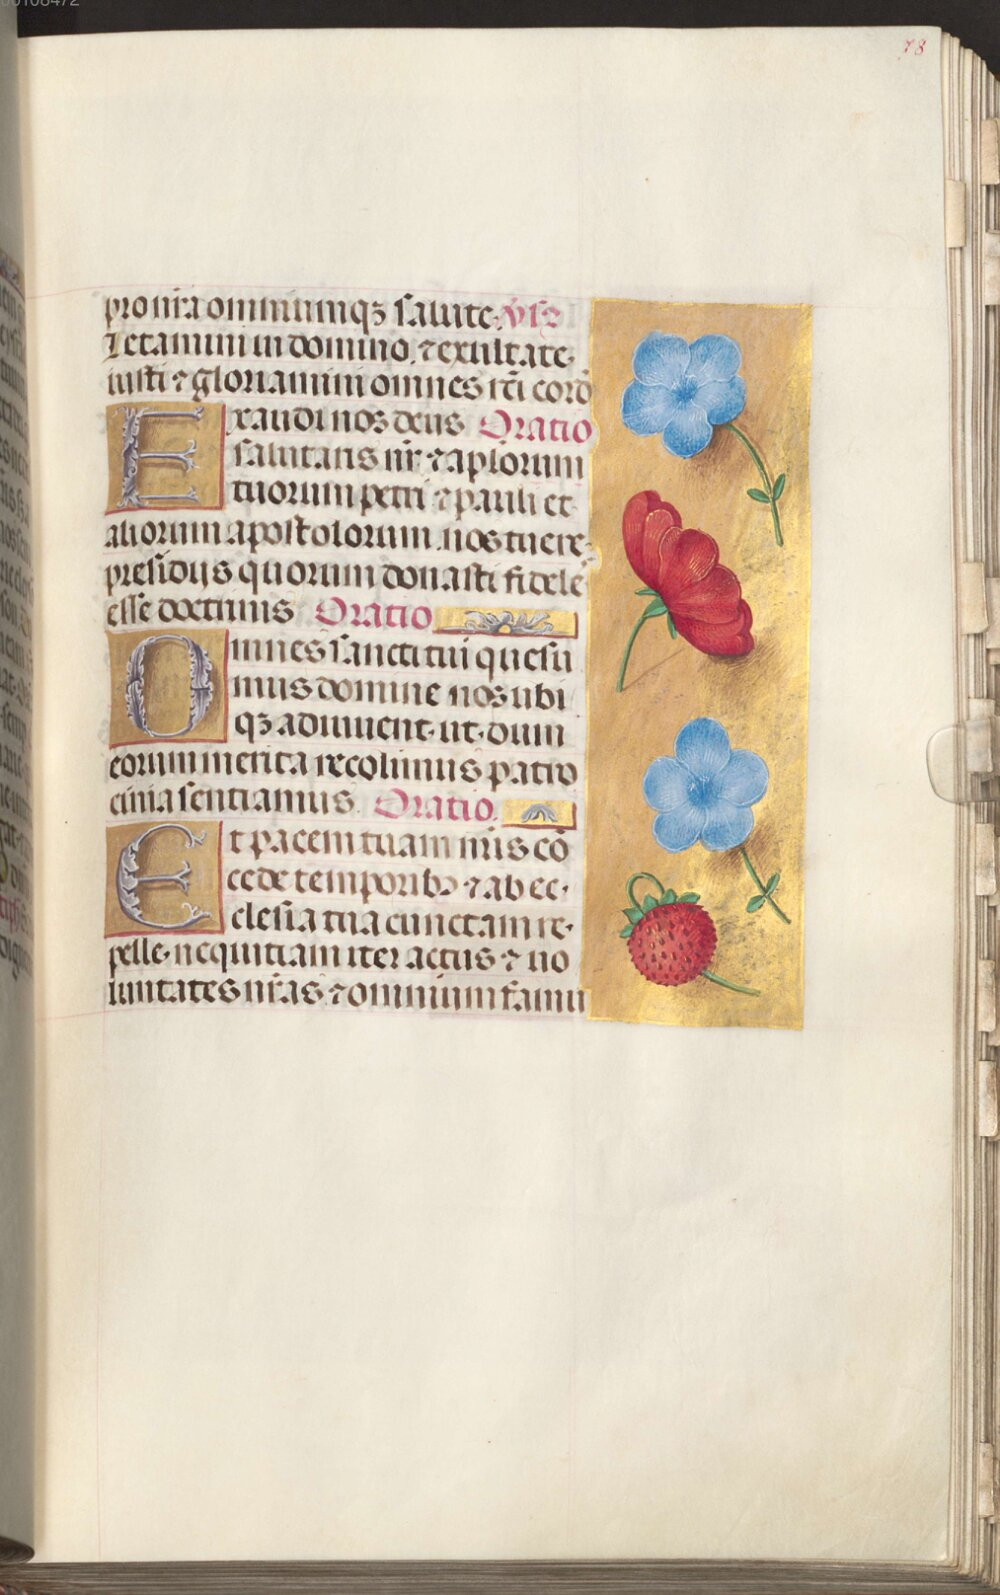 78
pro nr̄a omniumqꝫ salute. v̄sꝰ
Letamini in domino. ⁊ exultate
iusti ⁊ gloriamini omnes rc̄ti cord
Exaudi nos deus Oratio
salutaris nr̄ ⁊ aplorum
tuorum petri ⁊ pauli et
aliorum apostolorum nos tuere
presidijs quorum donasti fidele
esse doctrinis Oratio
Omnes sancti tui quesu
mus domine nos ubi
qꝫ adiuuent. ut. dum
eorum merita recolimus patro
cinia sentiamus. Oratio.
Et pacem tuam nr̄is cō
cede temporibꝰ ⁊ ab ec
clesia tua cunctam re
pelle nequitiam iter actus ⁊ uo
luntates nr̄as ⁊ omnium famu